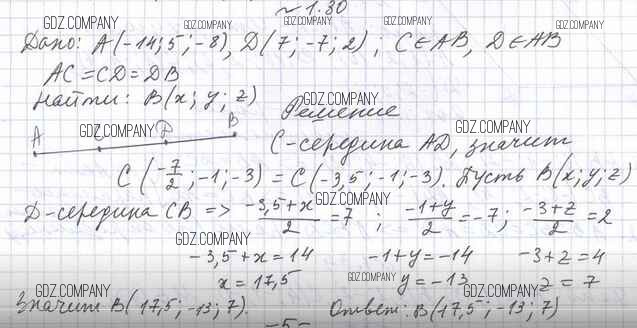 № 1.30
Дано: A(-14; 5; -8), D(7; -7; 2); C∈AB, D∈AB
AC = CD = DB
Найти: B(x; y; z)
Решение
A C D B
C-середина AD, значит
C(-7/2; -1; -3) = C(-3,5; -1; -3). Пусть B(x; y; z)
D-середина CB => (-3,5+x)/2 = 7; (-1+y)/2 = -7; (-3+z)/2 = 2
-3,5+x = 14 -1+y = -14 -3+z = 4
x = 17,5 y = -13 z = 7
Значит B(17,5; -13; 7). Ответ: B(17,5; -13; 7)
GDZ.COMPANY
GDZ.COMPANY
GDZ.COMPANY
GDZ.COMPANY
GDZ.COMPANY
GDZ.COMPANY
GDZ.COMPANY
GDZ.COMPANY
GDZ.COMPANY
GDZ.COMPANY
GDZ.COMPANY
GDZ.COMPANY